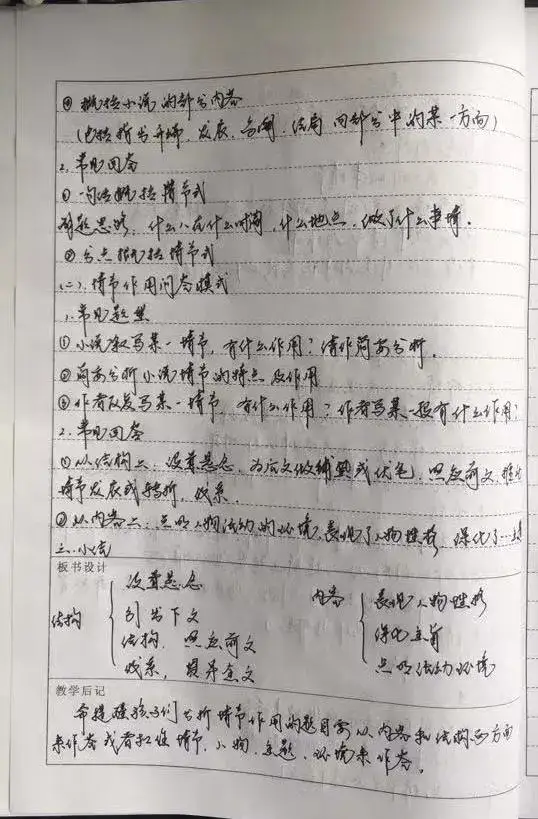 ④概括小说的部分内容
(包括情节开端、发展、高潮、结局四部分中的某一方面)
2.常见回答
①一句话概括情节式
解题思路:什么人在什么时间,什么地点,做了什么事情。
②分点概括情节式
(二)、情节作用问答模式
1.常见题型
①小说叙写某一情节,有什么作用?请作简要分析。
②简要分析小说情节的特点及作用
③作者反复写某一情节,有什么作用?作者写某一段有什么作用?
2.常见回答
①从结构上:设置悬念,为后文做铺垫或伏笔,照应前文,推动
情节发展或转折,线索
②从内容上:点明人物活动的环境,表现了人物性格,深化了…主
三.小结
板书设计
结构 { 设置悬念 内容 { 表现人物性格
引出下文 深化主旨
结构,照应前文 点明活动环境
线索,贯穿全文
教学后记
要提醒孩子们分析情节作用的题目要从内容和结构两方面
来作答或者和从情节、人物、主题、环境来作答。